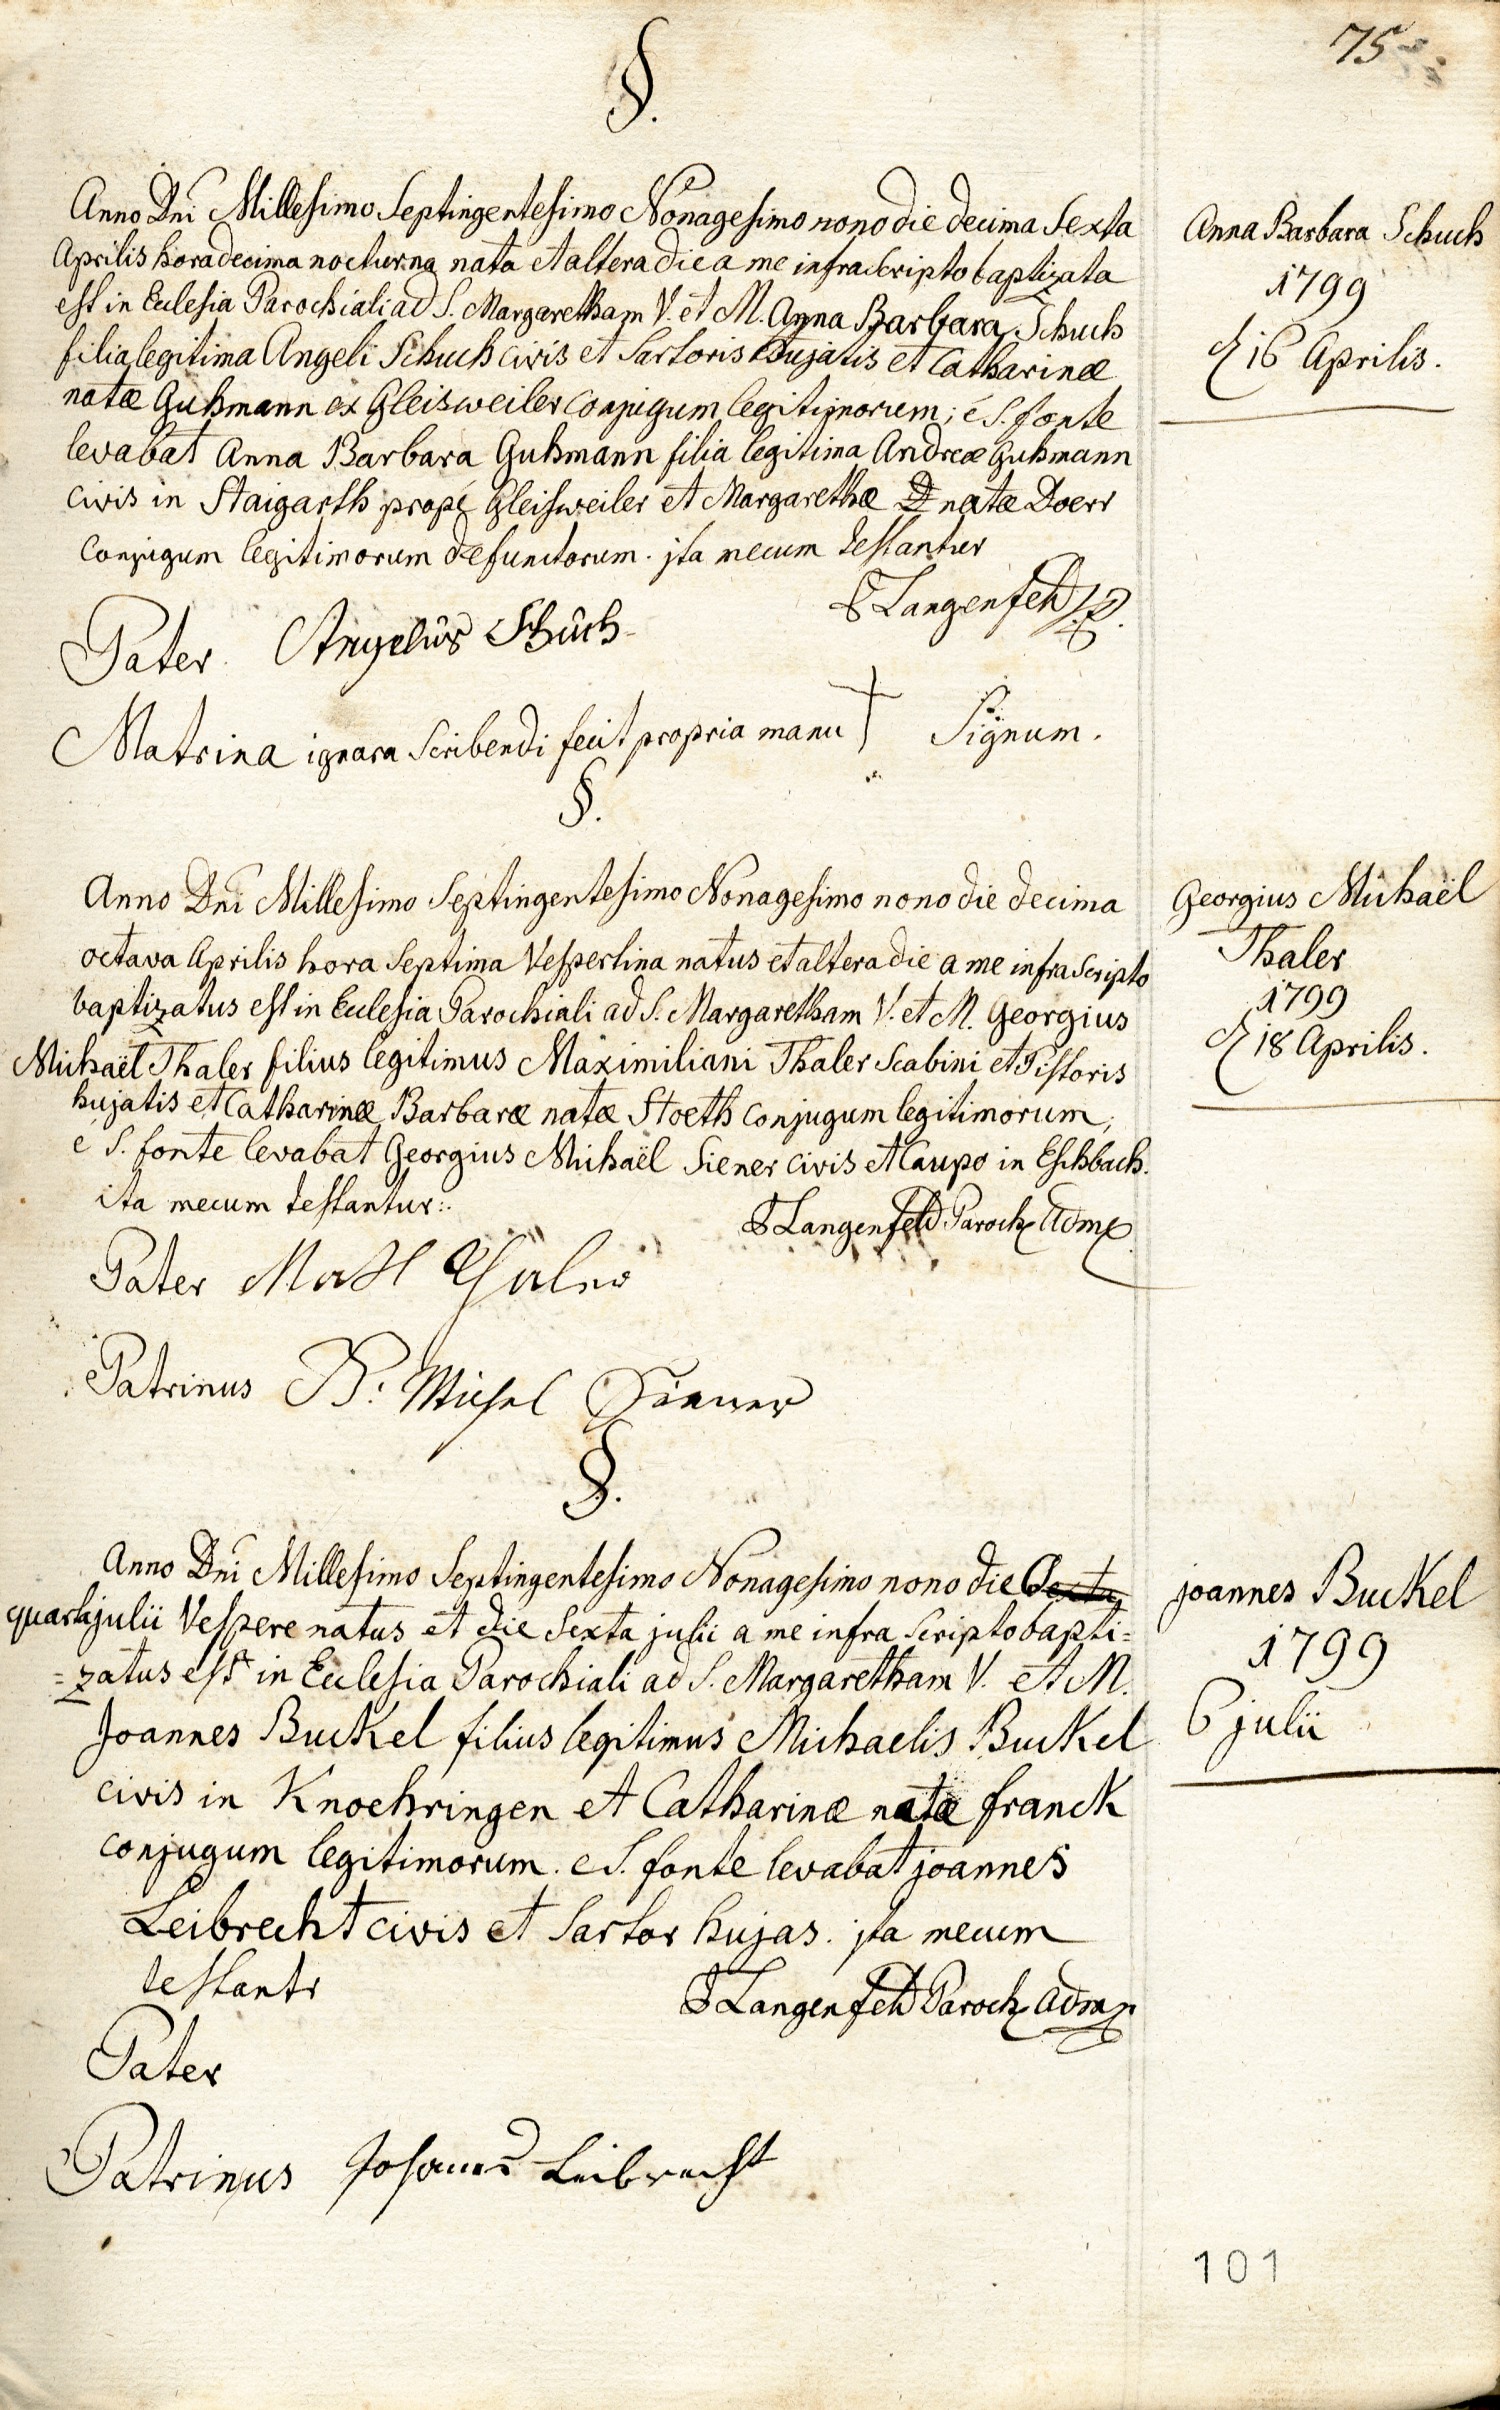 75
§.
Anno Dni Millesimo Septingentesimo Nonagesimo nono die decima Sexta
Aprilis hora decima nocturna nata et altera die a me infrascripto baptizata
est in Ecclesia Parochiali ad S. Margaretham V. et M. Anna Barbara Schuch
filia legitima Angeli Schuch civis et Sartoris hujatis et Catharinæ
natæ Guhmann ex Gleisweiler conjugum legitimorum; é S. fonte
levabat Anna Barbara Guhmann filia legitima Andreæ Guhmann
civis in Staigarth propé Gleisweiler et Margarethæ natæ Doerr
Conjugum legitimorum defunctorum. jta mecum testantur
Langenfeld
Pater Angelus Schuch
Matrina ignara Scribendi fecit propria manu † Signum.
Anna Barbara Schuch
1799
16 Aprilis.
§.
Anno Dni Millesimo Septingentesimo Nonagesimo nono die decima
octava Aprilis hora Septima Vespertina natus et altera die a me infra Scripto
baptizatus est in Ecclesia Parochiali ad S. Margaretham V. et M. Georgius
Michaël Thaler filius legitimus Maximiliani Thaler Scabini et Pistoris
hujatis et Catharinæ Barbaræ natæ Stoeth conjugum legitimorum,
é S. fonte levabat Georgius Michaël Siener civis et Caupo in Eschbach.
ita mecum testantur:
Langenfeld Paroch Adm
Pater Thaler
Patrinus Michel Siener
Georgius Michaël
Thaler
1799
18 Aprilis.
§.
Anno Dni Millesimo Septingentesimo Nonagesimo nono die Sexta
quarta julii Vespere natus et die Sexta julii a me infra Scripto bapti=
=zatus est in Ecclesia Parochiali ad S. Margaretham V. et M.
Joannes Buckel filius legitimus Michaelis Buckel
civis in Knoehringen et Catharinæ natæ franck
conjugum legitimorum. e S. fonte levabat joannes
Leibrecht civis et Sartor hujas. jta mecum
testantr
Langenfeld Paroch Adm
Pater
Patrinus Johanes Leibrecht
joannes Buckel
1799
6 julii
101